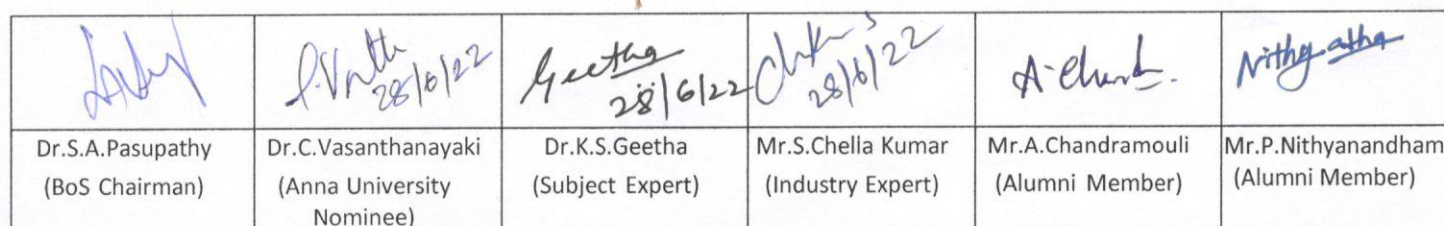 28/6/22
Geetha
28/6/22
28/6/22
Dr.S.A.Pasupathy
(BoS Chairman)
Dr.C.Vasanthanayaki
(Anna University
Nominee)
Dr.K.S.Geetha
(Subject Expert)
Mr.S.Chella Kumar
(Industry Expert)
Mr.A.Chandramouli
(Alumni Member)
Mr.P.Nithyanandham
(Alumni Member)